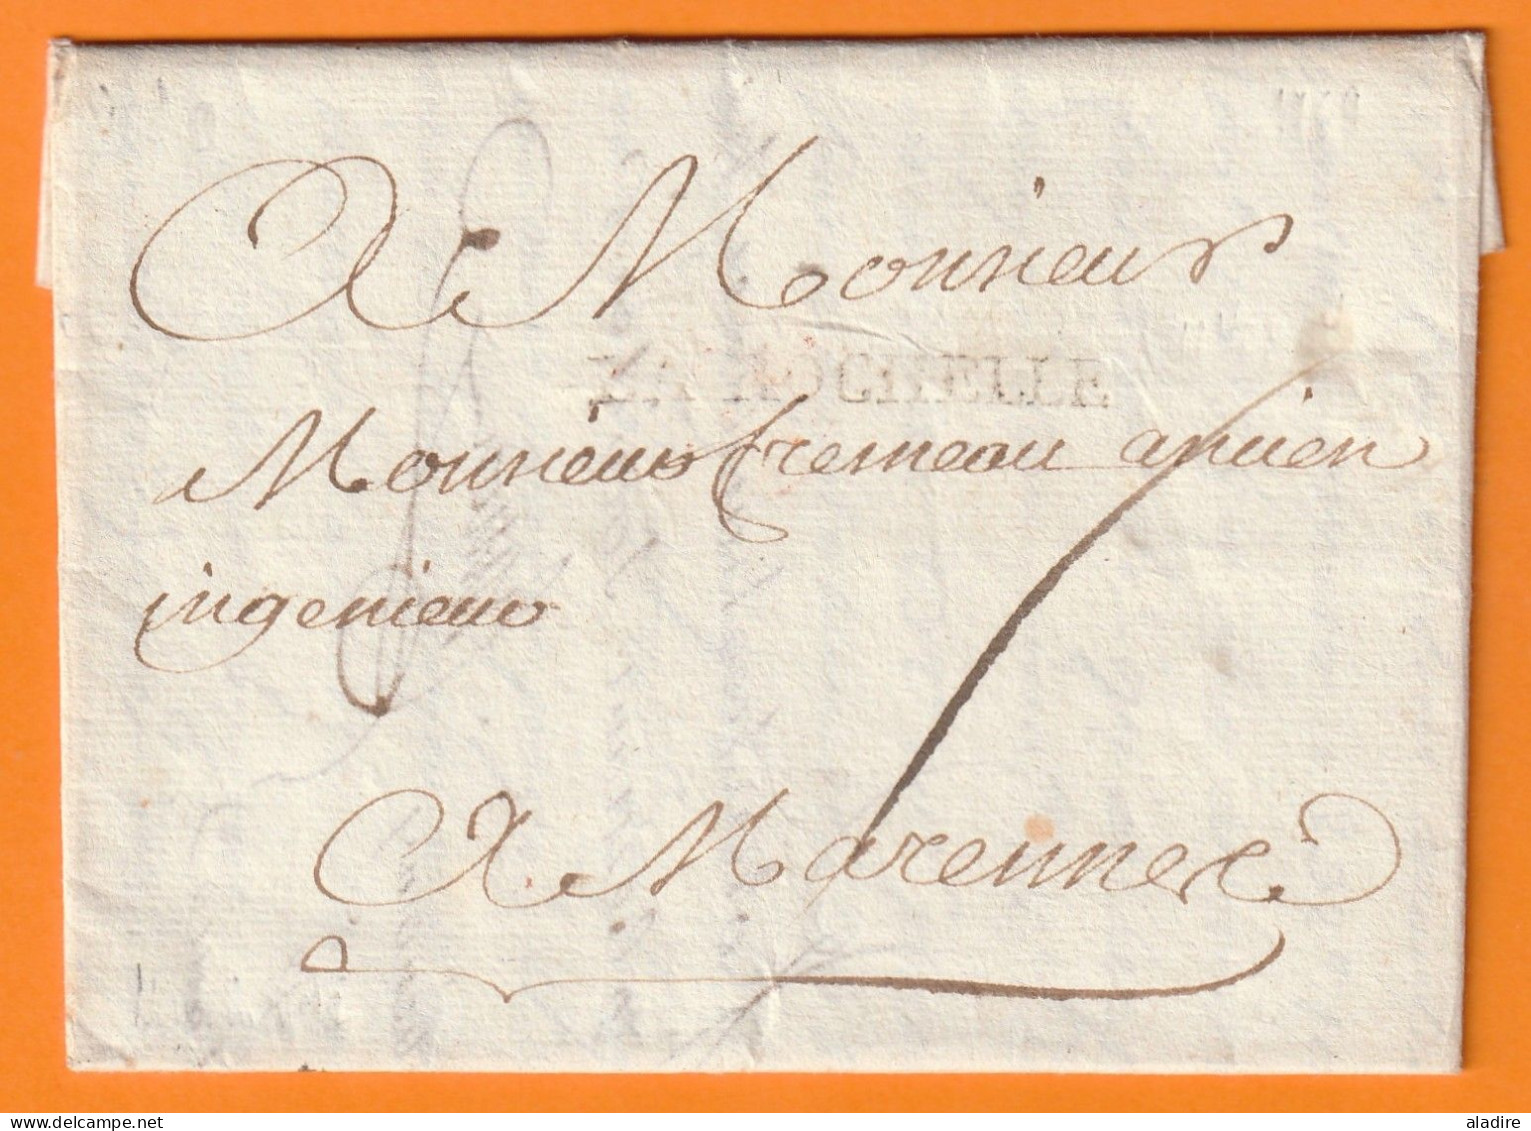 A Monsieur
LA ROCHELLE
Monsieur Cremeau ancien
ingenieur
A Marennes
delcampe.net
aladire